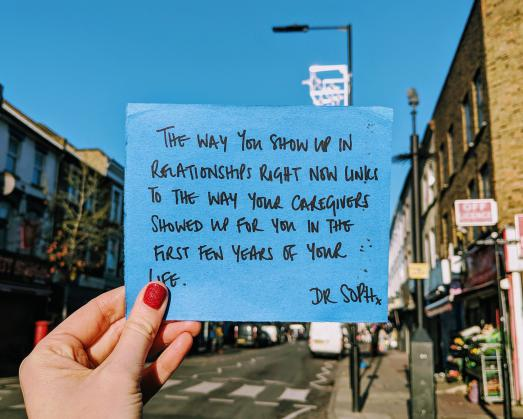 THE WAY YOU SHOW UP IN
RELATIONSHIPS RIGHT NOW LINKS
TO THE WAY YOUR CAREGIVERS
SHOWED UP FOR YOU IN THE
FIRST FEW YEARS OF YOUR
LIFE.
DR SOPHx
OFF
LICENCE